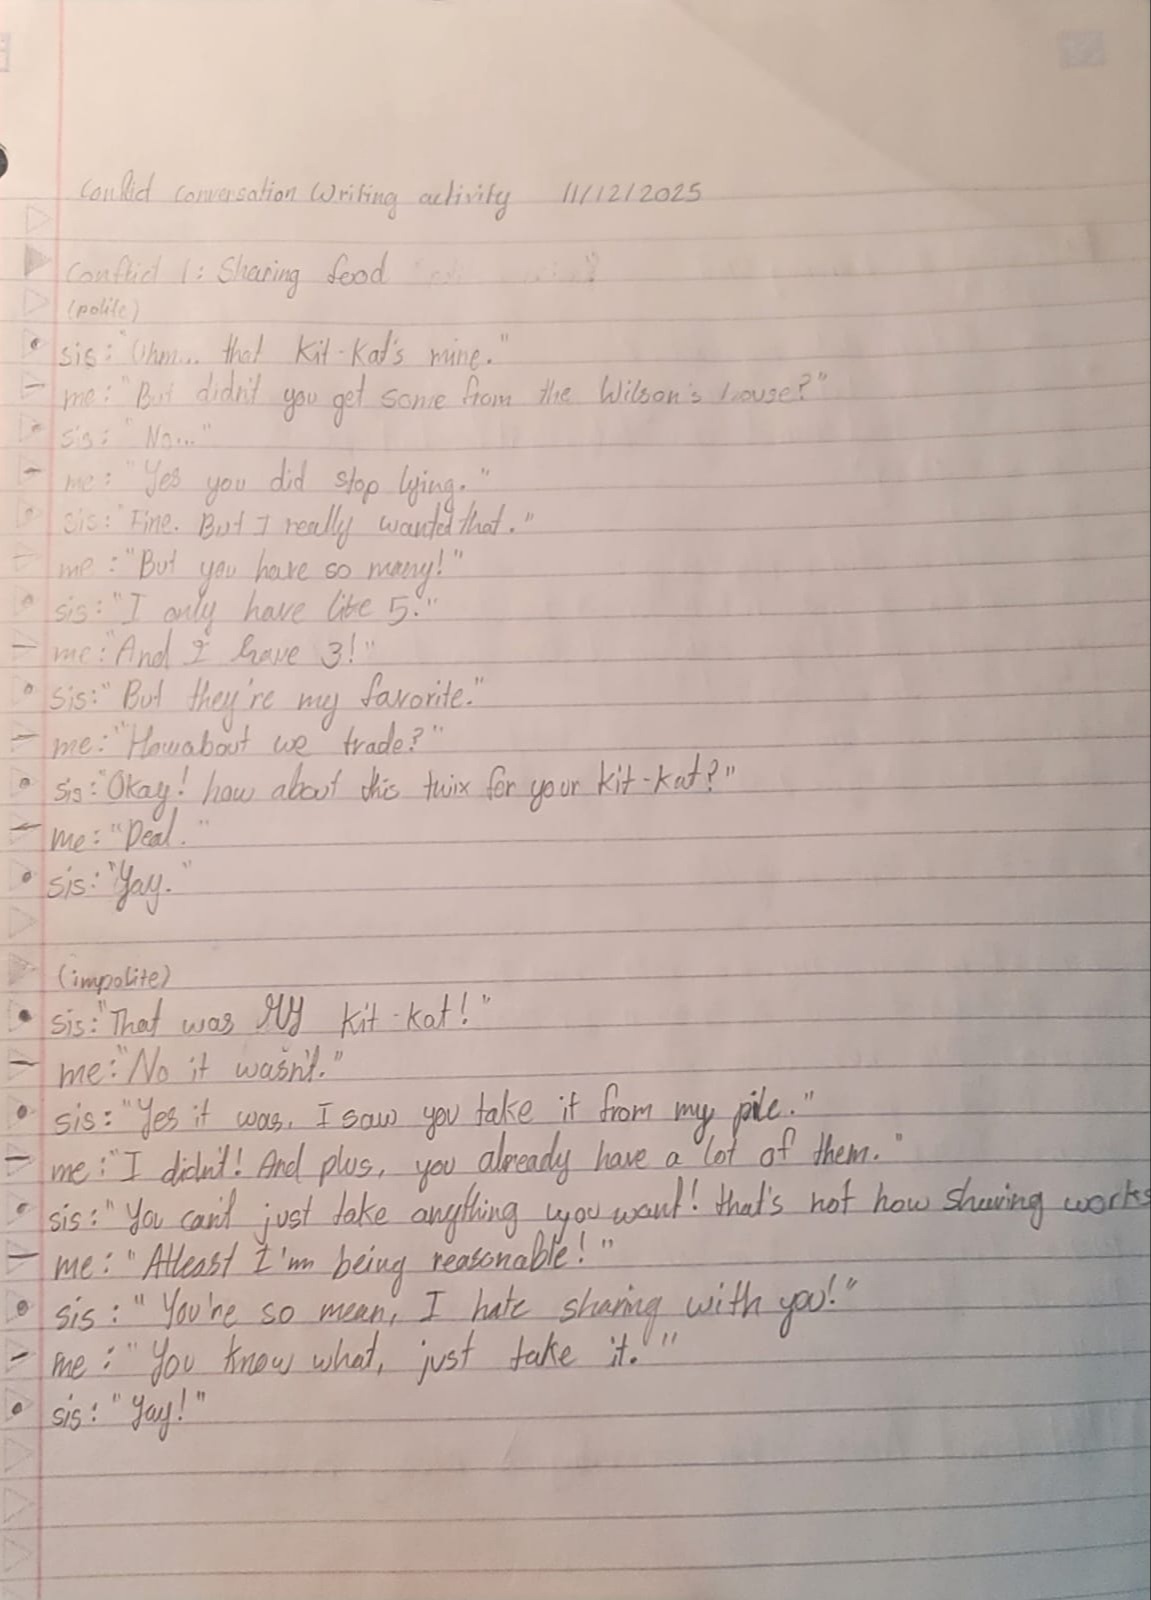 Conflict conversation Writing activity 11/12/2025
Conflict 1: Sharing food
(polite)
sis: "Uhm... that Kit-Kat's mine."
me: "But didn't you get some from the Wilson's house?"
sis: "No..."
me: "Yes you did stop lying."
sis: "Fine. But I really wanted that."
me: "But you have so many!"
sis: "I only have like 5."
me: "And I have 3!"
sis: "But they're my favorite."
me: "Howabout we trade?"
sis: "Okay! how about this twix for your kit-kat?"
me: "Deal."
sis: "Yay."
(impolite)
sis: "That was MY kit-kat!"
me: "No it wasn't."
sis: "Yes it was. I saw you take it from my pile."
me: "I didn't! And plus, you already have a lot of them."
sis: "You can't just take anything you want! that's not how sharing works
me: "Atleast I'm being reasonable!"
sis: "You're so mean, I hate sharing with you!"
me: "You know what, just take it."
sis: "Yay!"